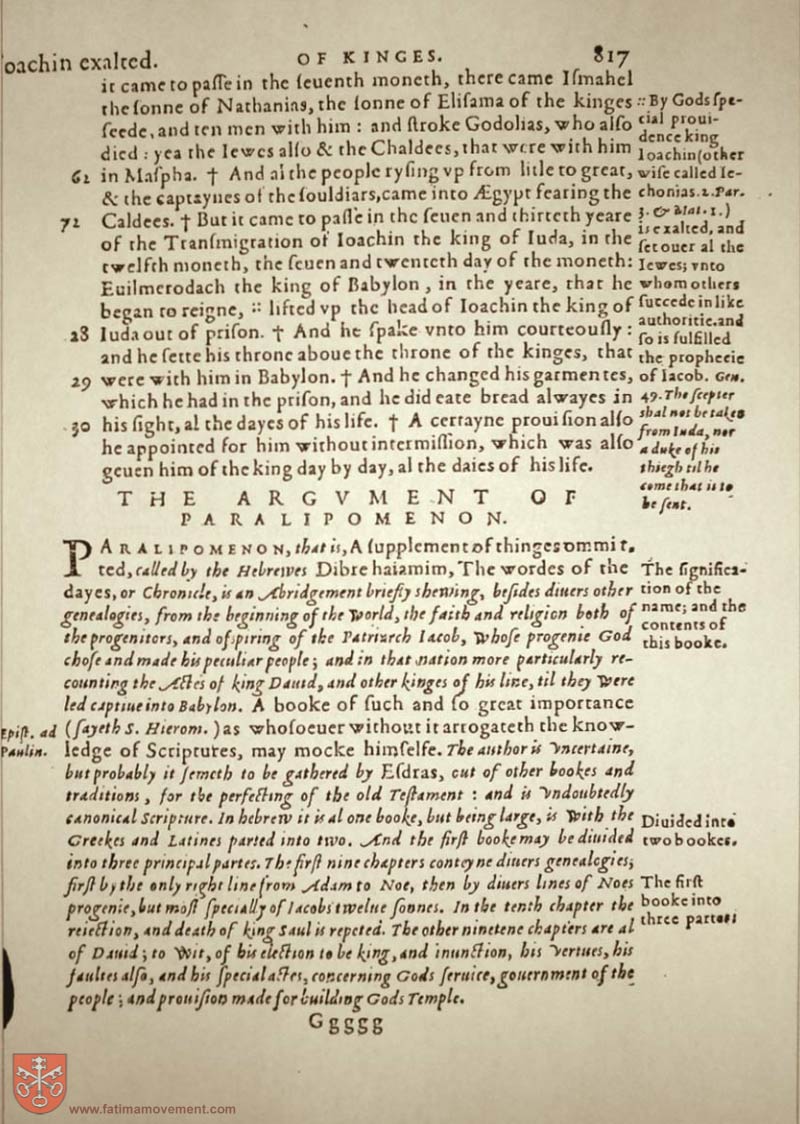 Ioachin exalted. OF KINGES. 817
it came to paſſe in the ſeuenth moneth, there came Iſmahel
the ſonne of Nathanias, the ſonne of Eliſama of the kinges
ſeede, and ten men with him : and ſtroke Godolias, who alſo
died : yea the Iewes alſo & the Chaldees, that were with him
in Maſpha. † And al the people ryſing vp from litle to great,
& the captaynes of the ſouldiars, came into Ægypt fearing the
Caldees. † But it came to paſſe in the ſeuen and thirteth yeare
of the Tranſmigration of Ioachin the king of Iuda, in the
twelfth moneth, the ſeuen and twenteth day of the moneth:
Euilmerodach the king of Babylon, in the yeare, that he
began to reigne, :: lifted vp the head of Ioachin the king of
Iuda out of priſon. † And he ſpake vnto him courteouſly :
and he ſette his throne aboue the throne of the kinges, that
were with him in Babylon. † And he changed his garmentes,
which he had in the priſon, and he did eate bread alwayes in
his ſight, al the dayes of his life. † A certayne prouiſion alſo
he appointed for him without intermiſſion, which was alſo
geuen him of the king day by day, al the daies of his life.
62
72
28
29
30
:: By Gods ſpe-
cial proui-
dence king
Ioachin (other
wiſe called Ie-
chonias. 1. Par.
3. & Mat. 1.)
is exalted, and
ſet ouer al the
Iewes; vnto
whom others
ſuccede in like
authoritie. and
ſo is fulfilled
the prophecie
of Iacob. Gen.
49. The ſcepter
shal not be taken
from Iuda, nor
a duke of his
thiegh til he
come that is to
be ſent.
THE ARGVMENT OF
PARALIPOMENON.
PARALIPOMENON, that is, A ſupplement of thinges ommit-
ted, called by the Hebrewes Dibre haiamim, The wordes of the
dayes, or Chronicle, is an Abridgement briefly shewing, beſides diuers other
genealogies, from the beginning of the world, the faith and religion both of
the progenitors, and ofſpiring of the Patriarch Iacob, whoſe progenie God
choſe and made his peculiar people; and in that nation more particularly re-
counting the Actes of king Dauid, and other kinges of his line, til they were
led captiue into Babylon. A booke of ſuch and ſo great importance
(ſayeth S. Hierom.) as whoſoeuer without it arrogateth the know-
ledge of Scriptures, may mocke himſelfe. The author is vncertaine,
but probably it ſemeth to be gathered by Eſdras, out of other bookes and
traditions, for the perfecting of the old Teſtament : and is vndoubtedly
canonical Scripture. In hebrew it is al one booke, but being large, is with the
Greekes and Latines parted into two. And the firſt booke may be diuided
into three principal partes. The firſt nine chapters conteyne diuers genealogies;
firſt by the only right line from Adam to Noe, then by diuers lines of Noes
progenie, but moſt ſpecially of Iacobs twelue ſonnes. In the tenth chapter the
reiection, and death of king Saul is repeted. The other ninetene chapters are al
of Dauid; to wit, of his election to be king, and inunction, his vertues, his
faultes alſo, and his ſpecial actes, concerning Gods ſeruice, gouernment of the
people; and prouiſion made for building Gods Temple.
The ſignifica-
tion of the
name; and the
contents of
this booke.
Epiſt. ad
Paulin.
Diuided into
two bookes.
The firſt
booke into
three partes:
Ggggg
www.fatimamovement.com